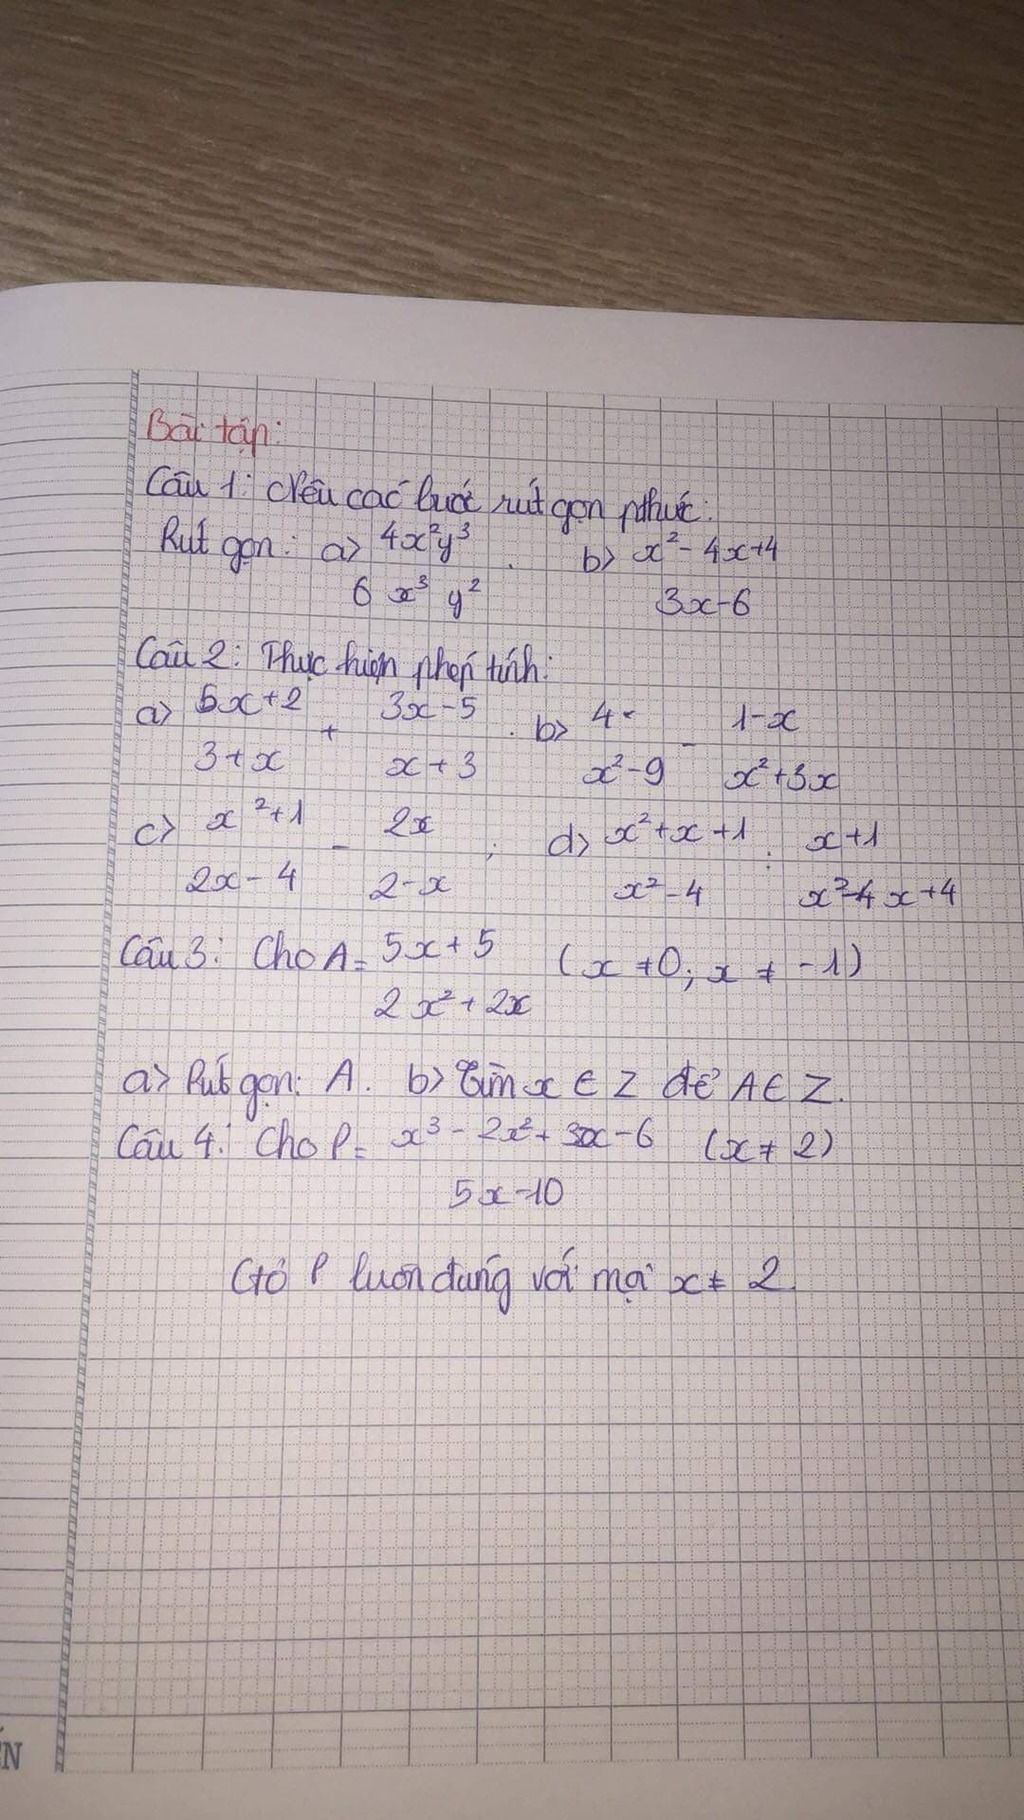 Bài tập:
Câu 1: Nêu các bước rút gọn pthức:
Rút gọn: a> 4x²y³ / 6x³y² . b> x² - 4x+4 / 3x-6
Câu 2: Thực hiện phép tính:
a> 5x+2 / 3+x + 3x-5 / x+3 . b> 4 / x²-9 - 1-x / x²+3x
c> x²+1 / 2x-4 - 2x / 2-x ; d> x²+x+1 / x²-4 : x+1 / x²-4x+4
Câu 3: Cho A= 5x+5 / 2x²+2x (x≠0; x≠-1)
a> Rút gọn: A. b> Tìm x ∈ Z để A ∈ Z.
Câu 4: Cho P= x³ - 2x² + 3x - 6 / 5x-10 (x≠2)
Ctỏ P luôn dương với mọi x≠2.
ẾN